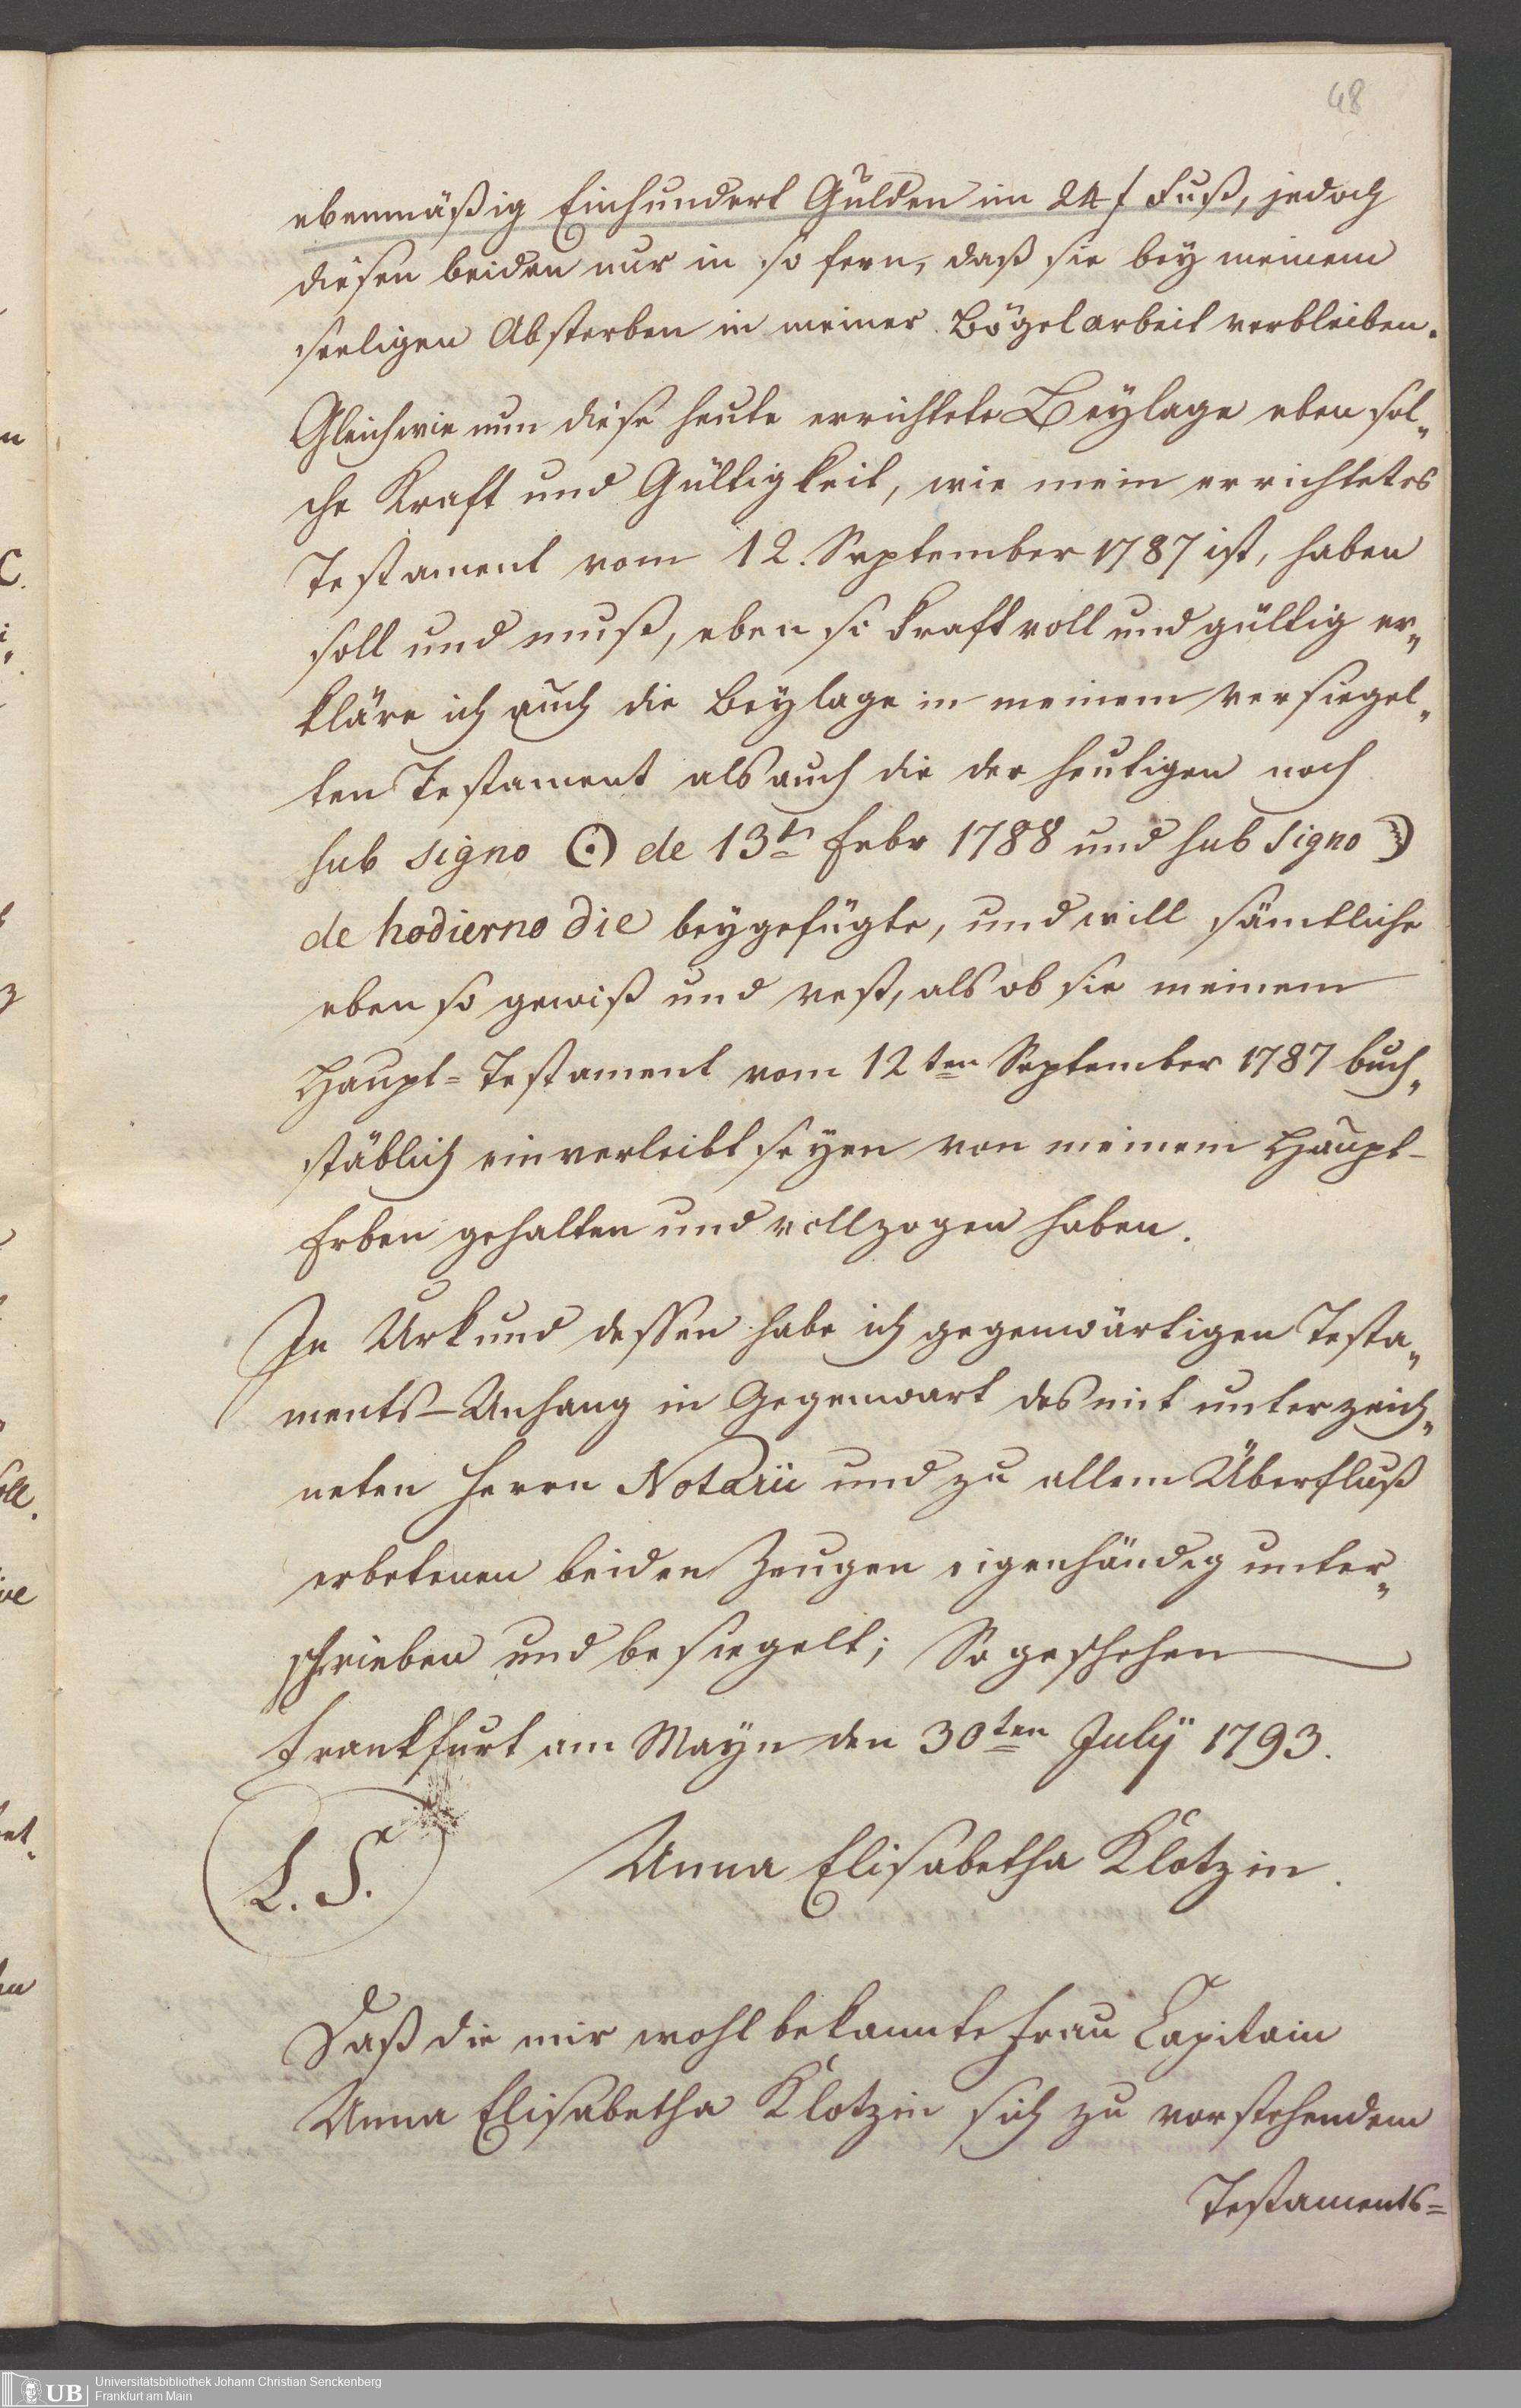 48
ebenmäßig Einhundert Gulden im 24 f Fuß, jedoch
diesen beiden nur in so fern, daß sie bey meinem
seeligen Absterben in meiner Bögelarbeit verbleiben.
Gleichwie nun diese heute errichtete Beylage eben sol„
che Kraft und Gültigkeit, wie mein errichtetes
Testament vom 12. September 1787 ist, haben
soll und muß, eben so kraftvoll und gültig er„
kläre ich auch die Beylage in meinem versiegel„
ten Testament als auch die der heutigen noch
sub signo ☉ de 13tn Febr 1788 und sub signo ☽
de hodierno die beygefügte, und will sämtliche
eben so gewiß und vest, als ob sie meinem
Haupt=Testament vom 12ten September 1787 buch„
stäblich einverleibt seyen von meinem Haupt-
Erben gehalten und vollzogen haben.
In Urkund dessen habe ich gegenwärtigen Testa„
ments-Anhang in Gegenwart des mit unterzeich„
neten Herrn Notarii und zu allem Überfluß
erbetenen beiden Zeugen eigenhändig unter„
schrieben und besiegelt; So geschehen
Frankfurt am Mayn den 30ten Julÿ 1793.
L. S. Anna Elisabetha Klotzin.
Daß die mir wohl bekannte Frau Capitain
Anna Elisabetha Klotzin sich zu vorstehendem
Testaments=
UB Universitätsbibliothek Johann Christian Senckenberg
Frankfurt am Main